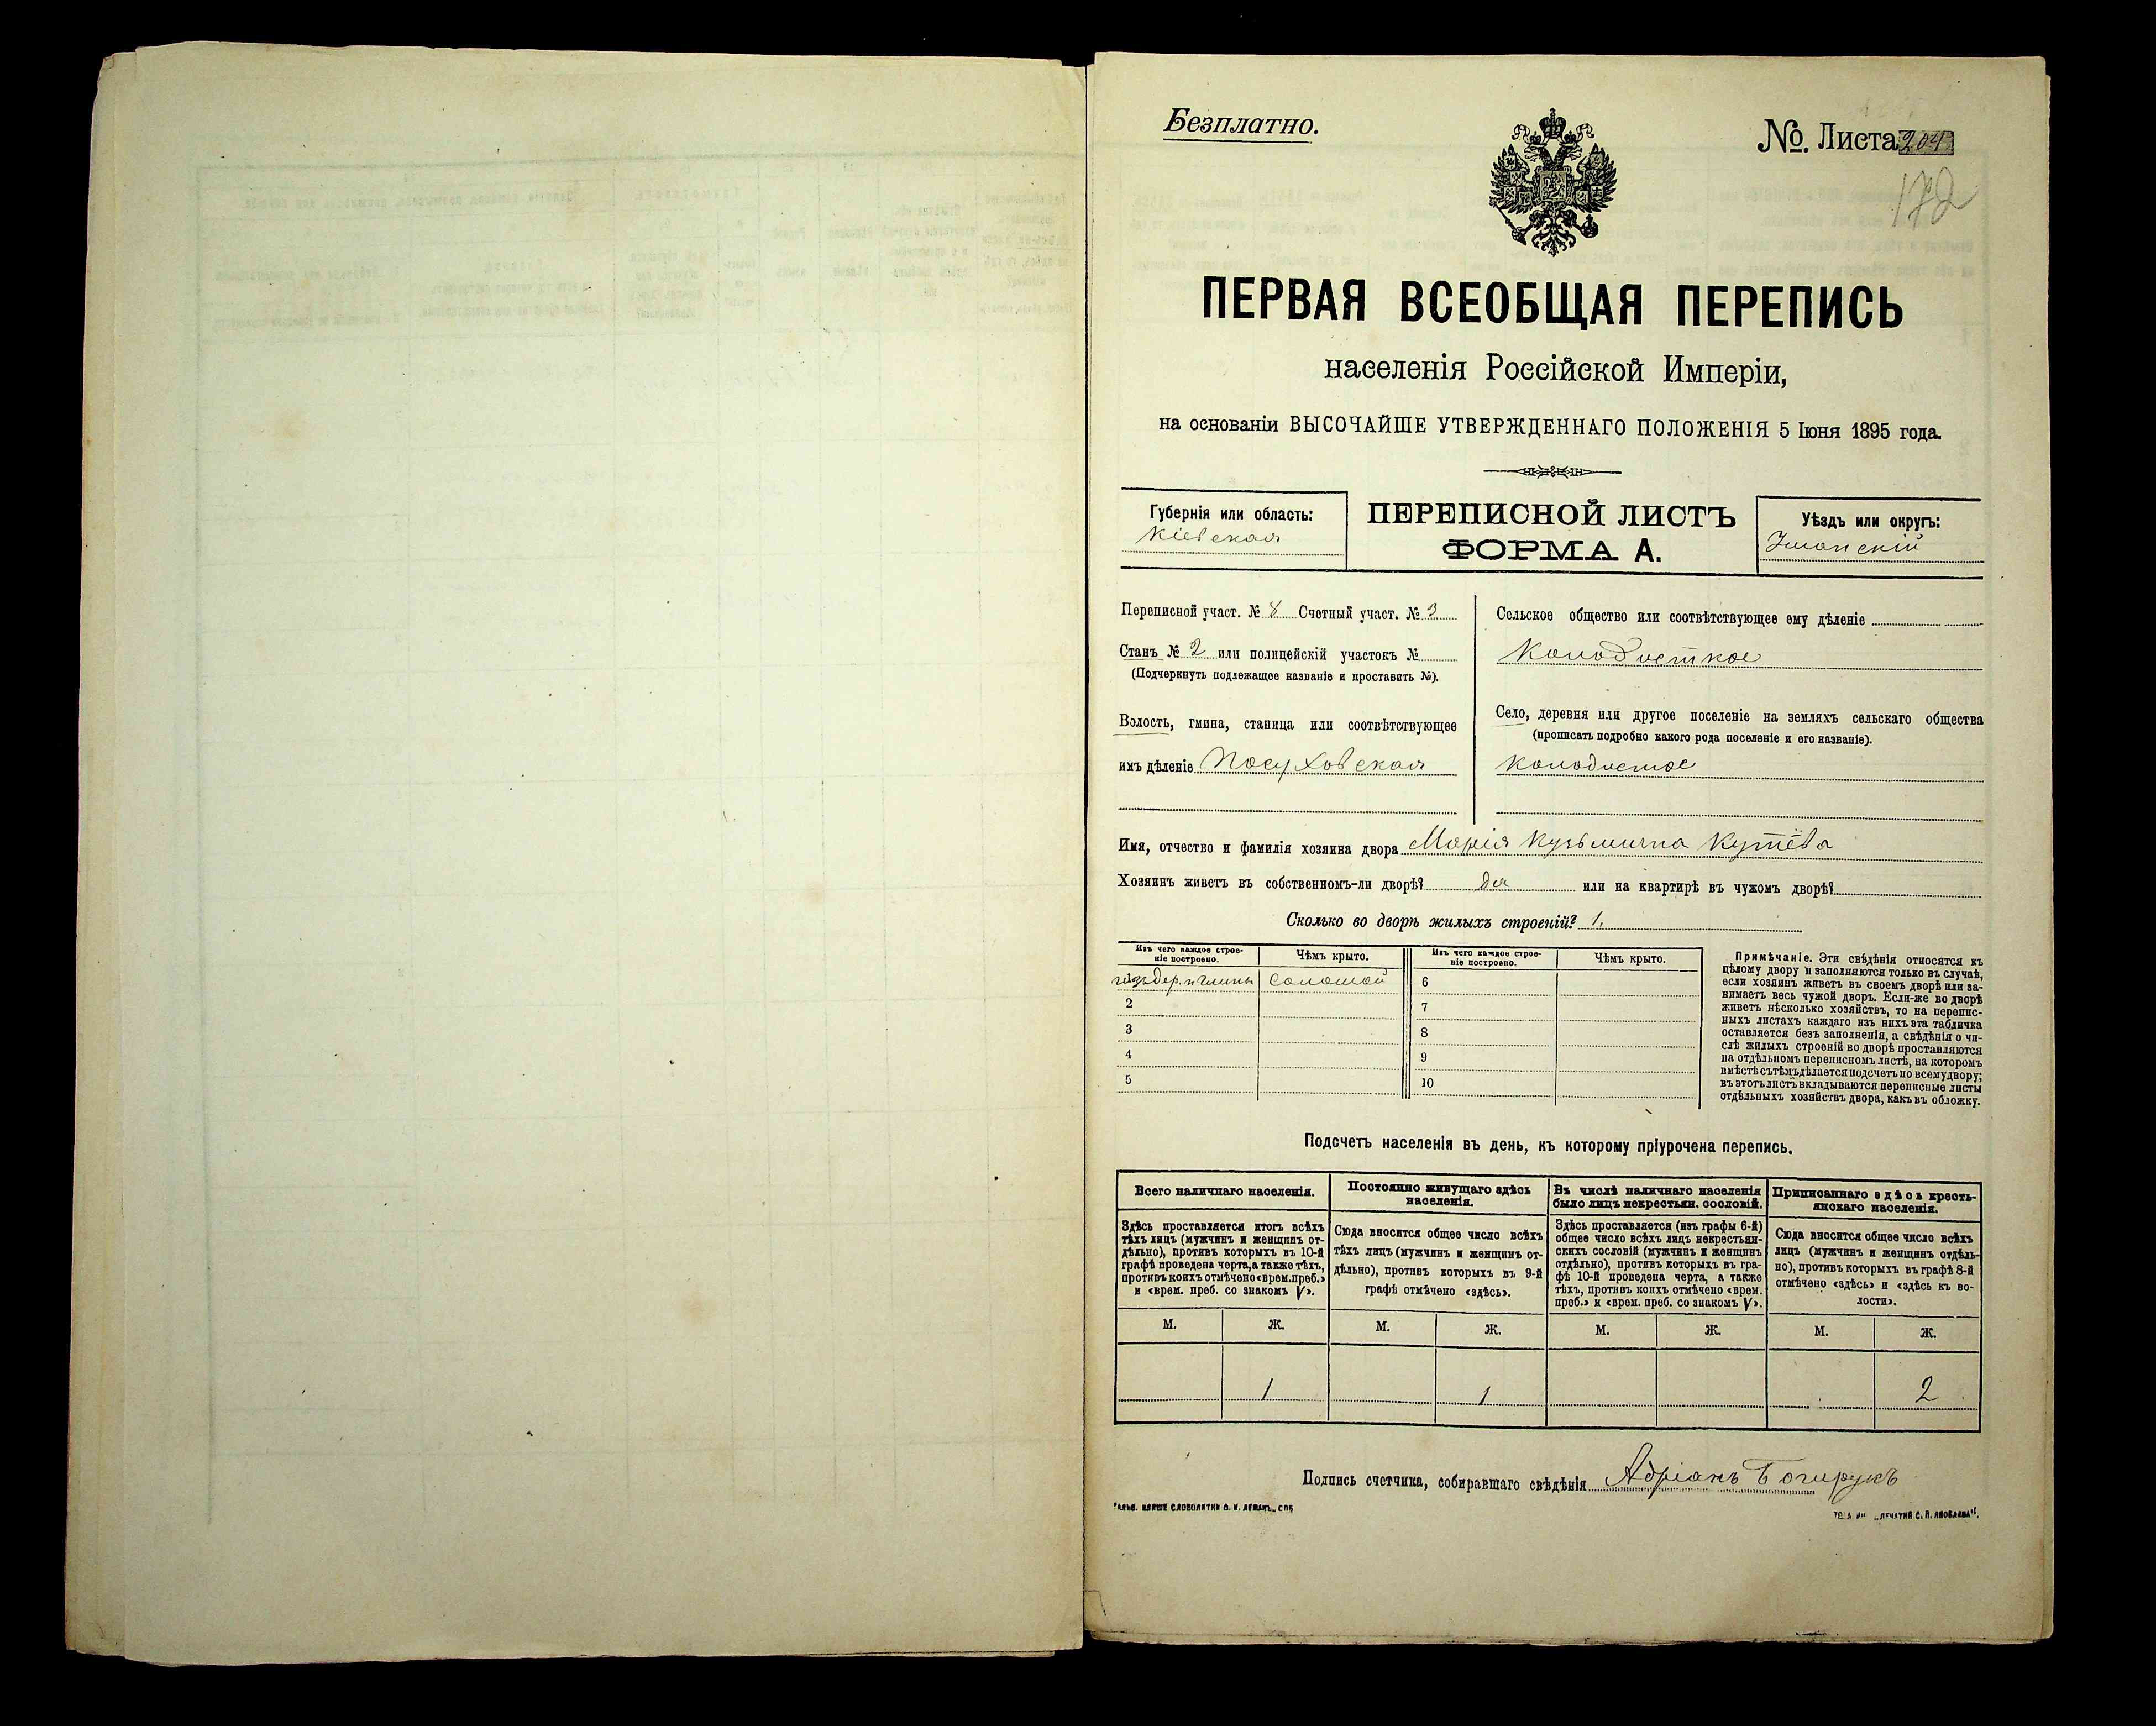 Безплатно.
№. Листа 204
172
ПЕРВАЯ ВСЕОБЩАЯ ПЕРЕПИСЬ
населенія Россійской Имперіи,
на основаніи ВЫСОЧАЙШЕ УТВЕРЖДЕННАГО ПОЛОЖЕНІЯ 5 Іюня 1895 года.
Губернія или область:
Кіевская
ПЕРЕПИСНОЙ ЛИСТЪ
ФОРМА А.
Уѣздъ или округъ:
Уманскій
Переписной участ. № 8 Счетный участ. № 3
Станъ № 2 или полицейскій участокъ №
(Подчеркнуть подлежащее названіе и проставить №).
Волость, гмина, станица или соотвѣтствующее
имъ дѣленіе Посуховская
Сельское общество или соотвѣтствующее ему дѣленіе
Колодисткое
Село, деревня или другое поселеніе на земляхъ сельскаго общества
(прописать подробно какого рода поселеніе и его названіе).
Колодистое
Имя, отчество и фамилія хозяина двора Марія Кузьмична Кутёва
Хозяинъ живетъ въ собственномъ-ли дворѣ? да или на квартирѣ въ чужомъ дворѣ?
Сколько во дворѣ жилыхъ строеній? 1.
Изъ чего каждое строе-
ніе построено.
Чѣмъ крыто.
Изъ чего каждое строе-
ніе построено.
Чѣмъ крыто.
1 изъ дер. и глины соломой 6
2 7
3 8
4 9
5 10
Примѣчаніе. Эти свѣдѣнія относятся къ
цѣлому двору и заполняются только въ случаѣ,
если хозяинъ живетъ въ своемъ дворѣ или за-
нимаетъ весь чужой дворъ. Если-же во дворѣ
живетъ нѣсколько хозяйствъ, то на перепис-
ныхъ листахъ каждаго изъ нихъ эта табличка
оставляется безъ заполненія, а свѣдѣнія о чи-
слѣ жилыхъ строеній во дворѣ проставляются
на отдѣльномъ переписномъ листѣ, на которомъ
вмѣстѣ съ тѣмъ дѣлается подсчетъ по всему двору;
въ этотъ листъ вкладываются переписные листы
отдѣльныхъ хозяйствъ двора, какъ въ обложку.
Подсчетъ населенія въ день, къ которому пріурочена перепись.
Всего наличнаго населенія.
Здѣсь проставляется итогъ всѣхъ
тѣхъ лицъ (мужчинъ и женщинъ от-
дѣльно), противъ которыхъ въ 10-й
графѣ проведена черта, а также тѣхъ,
противъ коихъ отмѣчено «врем. преб.»
и «врем. преб. со знакомъ V».
Постоянно живущаго здѣсь
населенія.
Сюда вносится общее число всѣхъ
тѣхъ лицъ (мужчинъ и женщинъ от-
дѣльно), противъ которыхъ въ 9-й
графѣ отмѣчено «здѣсь».
Въ числѣ наличнаго населенія
было лицъ некрестьян. сословій.
Здѣсь проставляется (изъ графы 6-й)
общее число всѣхъ лицъ некрестьян-
скихъ сословій (мужчинъ и женщинъ
отдѣльно), противъ которыхъ въ гра-
фѣ 10-й проведена черта, а также
тѣхъ, противъ коихъ отмѣчено «врем.
преб.» и «врем. преб. со знакомъ V».
Приписаннаго здѣсь кресть-
янскаго населенія.
Сюда вносится общее число всѣхъ
лицъ (мужчинъ и женщинъ отдѣль-
но), противъ которыхъ въ графѣ 8-й
отмѣчено «здѣсь» и «здѣсь къ во-
лости».
М. Ж. М. Ж. М. Ж. М. Ж.
1 1 2
Подпись счетчика, собиравшаго свѣдѣнія Адріанъ